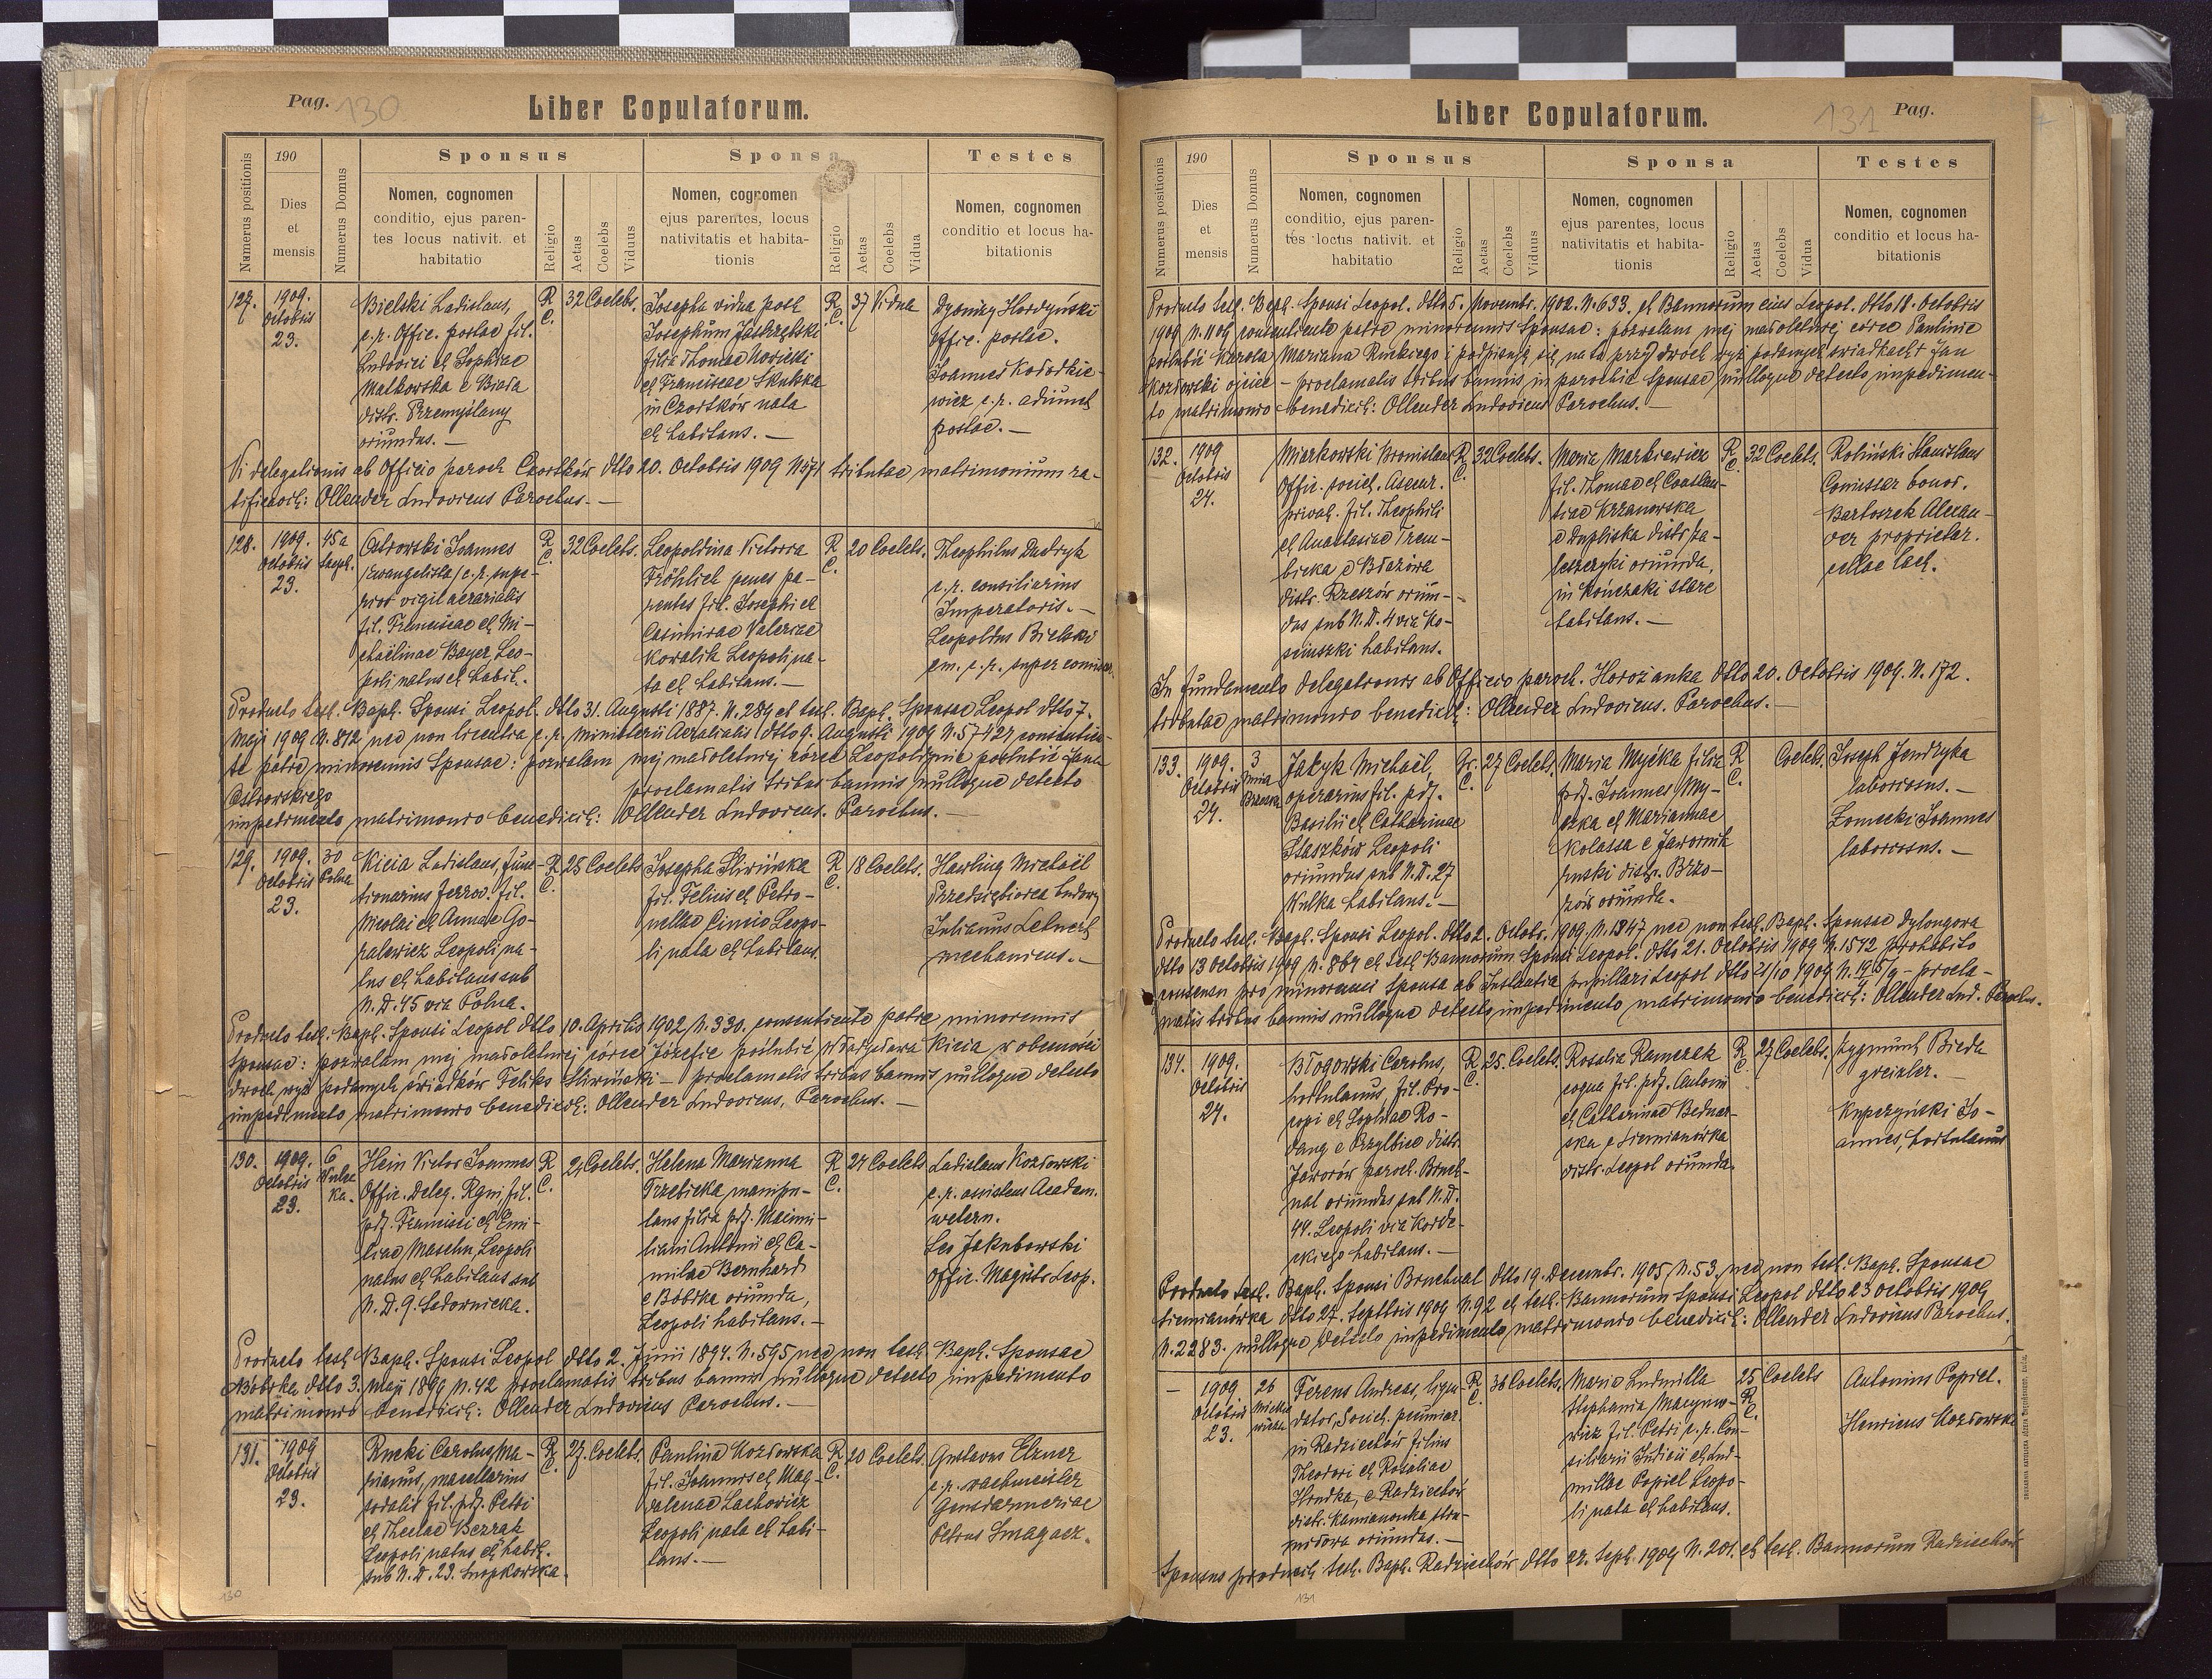 Pag. 130
Liber Copulatorum.
Numerus positionis
190
Dies
et
mensis
Numerus Domus
Sponsus
Nomen, cognomen
conditio, ejus paren-
tes locus nativit. et
habitatio
Religio
Aetas
Coelebs
Viduus
Sponsa
Nomen, cognomen
ejus parentes, locus
nativitatis et habita-
tionis
Religio
Aetas
Coelebs
Vidua
Testes
Nomen, cognomen
conditio et locus ha-
bitationis
127.
1909.
Octobris
23.
Bielski Ladislaus,
c.r. Offic. postae fil.
Ludovici et Sophiae
Malkowska e Biała
distr. Przemyślany
oriundus. —
R.
C.
32 Coelebs.
Josepha vidua post
Josephum Jastrzębski
filia Thomae Nowicki
et Franciscae Skulska
in Czortków nata
et habitans. —
R.
C.
37 Vidua
Dyonizy Hordyński
offic. postae.
Joannes Kołodkie-
wicz c.r. adiunct
postae. —
Vi delegationis ab Officio paroch Czortków dtto 20. Octobris 1909 N 571 tributae matrimonium ra-
tificavit: Ollender Ludovicus Parochus. —
128.
1909.
Octobris
23.
45a
Ostrowski Joannes
/Ewangelista/ c.r. supe-
rior vigil aerarialis
fil. Franciscae et Mi-
chaëlinae Bayer Leo-
poli natus et habit.
R
C.
32 Coelebs.
Leopoldina Victoria
Fröhlich penes pa-
rentes fil. Josephi et
Casimirae Valeriae
Kowalik Leopoli na-
ta et habitans. —
R
C.
20 Coelebs.
Theophilus Dudryk
c.r. consiliarius
Imperatoris. —
Leopoldus Bielski
em. c.r. super comiss.
Producto test. Bapt. Sponsi Leopol. dtto 31. Augusti 1887. N. 289 et test. Bapt. Sponsae Leopol dtto 7.
Maji 1909 N. 812 nec non licentia c.r. Ministerii Aerarialis dtto 9. Augusti 1909 N. 57427 consentien-
te patre minorennis Sponsae: pozwalam mej małoletniej córce Leopoldynie poślubić Jana
Ostrowskiego proclamatis tribus bannis nulloque detecto
impedimento matrimonio benedixit: Ollender Ludovicus. Parochus. —
129.
1909.
Octobris
23.
30
Polna
Kicia Ladislaus, func-
tionarius ferrov. fil.
Nicolai et Annae Go-
ralewicz Leopoli na-
tus et habitans sub
N. D. 45 via Polna.
R
C.
25 Coelebs
Josepha Śliwińska
fil. Felicis et Petro-
nellae Cimio Leopo-
li nata et habitans.
R
C.
18 Coelebs.
Hawling Michaël
Przedsiębiorca budowy
Julianus Lehnert
mechanicus. —
Producto test. Bapt. Sponsi Leopol dtto 10. Aprilis 1902 N. 330. consentiente patre minorennis
Sponsae: pozwalam mej małoletniej córce Józefie poślubić Władysława Kicia w obecności
dwoch wyż podanych świadków Feliks Śliwiński — proclamatis tribus bannis nulloque detecto
impedimento matrimonio benedixit: Ollender Ludovicus, Parochus. —
130.
1909.
Octobris
23.
6
Kulec
ka.
Hein Victor Joannes
Offic. Deleg. Rgni, fil.
pdf. Francisci et Emi-
liae Maschn, Leopoli
natus et habitans sub
N. D. 9. Sadownicka.
R
C.
24 Coelebs.
Helena Marianna
Trzebicka, manipu-
lans filia pdf. Maximi-
liani Antonii et Ca-
milae Bernhard
e Bóbrka oriunda,
Leopoli habitans. —
R
C.
24 Coelebs
Ladislaus Kozłowski
c.r. assistens Academ.
weter.
Leo Jakubowski
Offic. Magistr. Leop.
Producto test Bapt. Sponsi Leopol dtto 2. Junii 1894. N. 595 nec non test. Bapt. Sponsae
Bóbrka dtto 3. Maji 1899 N. 42 proclamatis tribus bannis nulloque detecto impedimento
matrimonio benedixit: Ollender Ludovicus Parochus. —
131.
1909
Octobris
23.
Rucki Carolus Ma-
rianus, macellarius
sodalis fil. pdf. Petri
et Theclae Bezzak
Leopoli natus et habit.
sub N. D. 29. Snopkowska.
R.
C.
27. Coelebs.
Paulina Kozłowska
fil. Joannis et Mag-
dalenae Lachowicz
Leopoli nata et habi-
tans. —
R.
C.
20 Coelebs.
Gustavus Elzner
c.r. wachmeister
Gensdarmeriae
Petrus Smagacz.
130
Liber Copulatorum.
131 Pag.
Numerus positionis
190
Dies
et
mensis
Numerus Domus
Sponsus
Nomen, cognomen
conditio, ejus paren-
tes locus nativit. et
habitatio
Religio
Aetas
Coelebs
Viduus
Sponsa
Nomen, cognomen
ejus parentes, locus
nativitatis et habita-
tionis
Religio
Aetas
Coelebs
Vidua
Testes
Nomen, cognomen
conditio et locus ha-
bitationis
Producto test. Bapt. Sponsi Leopol. dtto 5. Novembr. 1902. N. 633. et Bannorum eius Leopol. dtto 18. Octobris
1909 N. 1109 consentiente patre minorennis Sponsae: pozwalam mej małoletniej córce Paulinie
poślubić Karola Mariana Ruckiego i podpisuję się na to przy dwoch wyż podanych świadkach Jan
Kozłowski ojciec — proclamatis tribus bannis in parochia Sponsae nulloque detecto impedimen-
to matrimonio benedixit: Ollender Ludovicus Parochus. —
132.
1909
Octobris
24.
Miarkowski Bronislaus
Offic. societ. Assecur.
privat. fil. Theophili
et Anastasiae Trem-
bicka e Błażowa
distr. Rzeszów oriun-
dus sub N. D. 4 via Ko-
ściuszki habitans.
R.
C.
32 Coelebs.
Maria Markiewicz
fil. Thomae et Constan-
tiae Krzanowska
e Dupliska distr. Za-
leszczyki oriunda,
in Kończaki stare
habitans. —
R.
C.
32 Coelebs.
Robiński Stanislaus
Comissar bonor.
Bartoszek Alexan-
der proprietar.
cellae lact.
In fundamento delegationis ab Officio paroch. Horożanka dtto 20. Octobris 1909. N. 172.
tributae matrimonio benedixit: Ollender Ludovicus. Parochus. —
133.
1909.
Octobris
24.
3
Jakyk Michaël,
operarius fil. pdf.
Basilii et Catharinae
Staszków Leopoli
oriundus sub N. D. 27
Kulka habitans. —
Gr.
C.
27 Coelebs.
Maria Myćka filia
pdf. Joannes My-
ćka et Mariannae
Kolassa e Jawornik
ruski distr. Brzo-
zów oriunda.
R
C.
Coelebs.
Joseph Jendzyka
laboriosus. —
Zomecki Joannes
laboriosus. —
Producto test. Bapt. Sponsi Leopol. dtto 2. Octobr. 1909. N. 1847 nec non test. Bapt. Sponsae Dylongowa
dtto 13 Octobris 1909 N. 864 et test Bannorum Sponsi Leopol. dtto 21. Octobris 1909 N. 1572 prohibito
consensu pro minorenni Sponsa ab Instantia pupillari Leopol dtto 21/10 1909 — procla-
matis tribus bannis nulloque detecto impedimento matrimonio benedixit: Ollender Lud. Parochus.
134.
1909.
Octobris
24.
Błogowski Carolus,
hortulanus, fil. Pro-
copi et Sophiae Ro-
dang e Przyłbice distr.
Jaworów paroch. Bruch-
nal oriundus sub N. D.
44. Leopoli via Korde-
ckiego habitans. —
R.
C.
25. Coelebs.
Rosalia Ramczak
coqua fil. pdf. Antoni
et Catharinae Bednar-
ska e Siemianówka
distr. Leopol oriunda.
R
C.
27 Coelebs.
Zygmunt Bieda
greisler. —
Kupczyński Jo-
annes, hortulanus
Producto test. Bapt. Sponsi Bruchnal dtto 19. Decembr. 1905 N. 53. nec non test. Bapt. Sponsae
Siemianówka dtto 27. Septbris 1909 N. 92 et test. Bannorum Sponsi Leopol dtto 23 Octobris 1909
N. 2283. nulloque detecto impedimento matrimonio benedixit: Ollender Ludovicus Parochus.
—
1909
Octobris
23.
26
Mickie
wicza
Ferens Andreas, liqui-
dator, Societ. pecuniar.
in Radziechów filius
Theodori et Rosaliae
Hrudka, e Radziechów
distr. Kamionka stru-
miłowa oriundus. —
R.
C.
36 Coelebs.
Maria Ludmilla
Stephania Macyno-
wicz fil. Petri c.r. Con-
siliarii Judicii et Lud-
millae Popiel Leopo-
li nata et habitans.
25 Coelebs
R.
C.
Antonius Popiel.
Henricus Kozłowski
Sponsus produxit test. Bapt. Radziechów dtto 22. Sept. 1909 N. 201. et test. Bannorum Radziechów
131